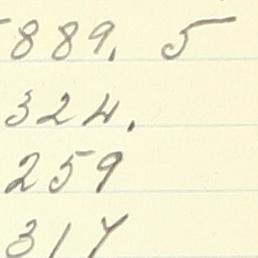 889. 5
324.
259
317